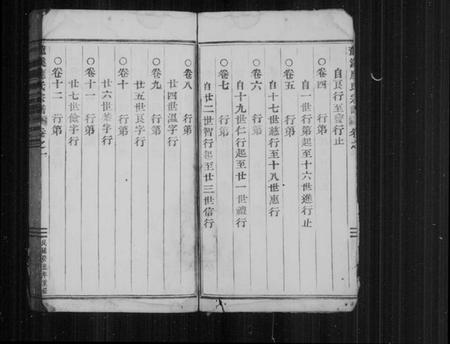 自良行至慶行止
○卷四 行第
自一世行第起至十六世進行止
○卷五 行第
自十七世慈行至十八世惠行
○卷六 行第
自十九世仁行起至廿一世禮行
○卷七 行第
自廿二世智行起至廿三世信行
○卷八 行第
廿四世溫字行
○卷九 行第
廿五世良字行
○卷十 行第
廿六世恭字行
○卷十一 行第
廿七世儉字行
○卷十二 行第